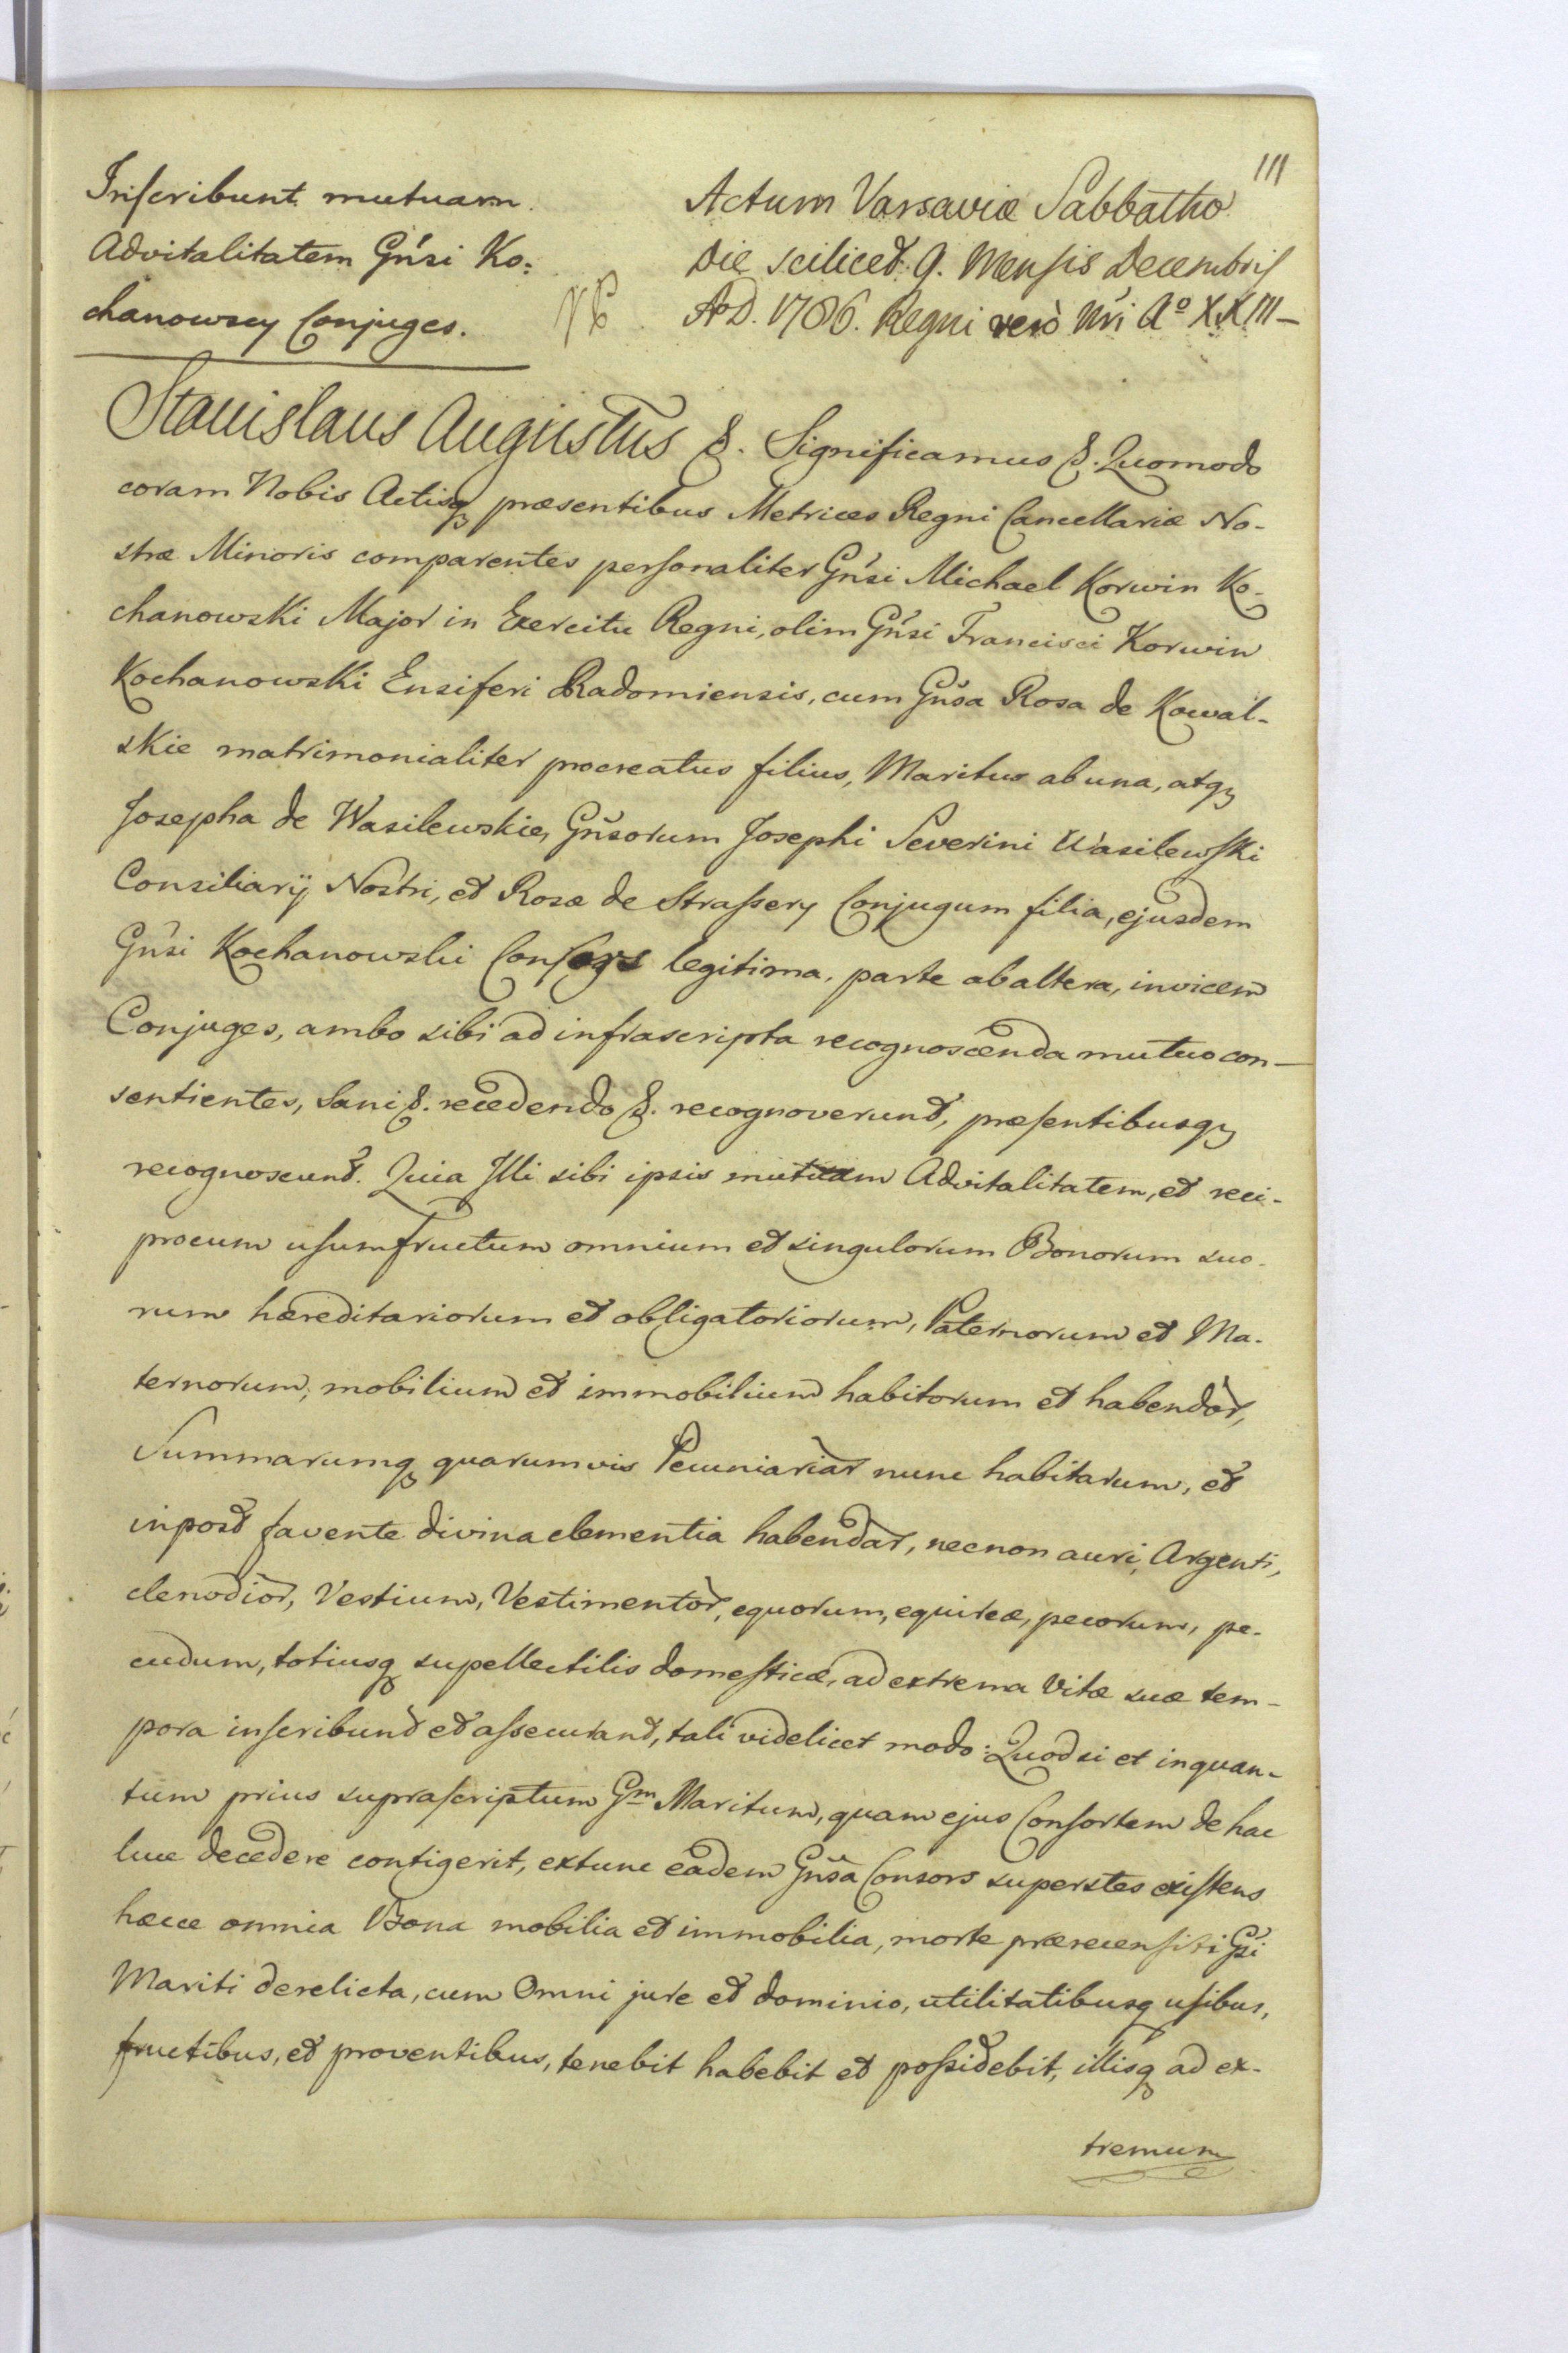 111
Inscribunt mutuam
Advitalitatem Gñsi Ko:
chanowscy Conjuges.
Actum Varsaviæ Sabbatho
Die scilicet 9. Mensis Decembris
AD. 1786. Regni verò Nri Aº XXIII–
Stanislaus Augustus &. Significamus &. Quomodo
coram Nobis Actisq præsentibus Metrices Regni Cancellariæ No-
stræ Minoris comparentes personaliter Gñsi Michael Korwin Ko-
chanowski Major in Exercitu Regni, olim Gñsi Francisci Korwin
Kochanowski Ensiferi Radomiensis, cum Gñsa Rosa de Kowal-
skie matrimonialiter procreatus filius, Maritus ab una, atq
Josepha de Wasilewskie, Gñsorum Josephi Severini Wasilewski
Consiliarij Nostri, et Rosæ de Strassery Conjugum filia, ejusdem
Gñsi Kochanowski Consors legitima, parte ab altera, invicem
Conjuges, ambo sibi ad infrascripta recognoscenda mutuo con-
sentientes, Sani &. recedendo &. recognoverunt, præsentibusq
recognoscunt. Quia Illi sibi ipsis mutuam Advitalitatem, et reci-
procum usumfructum omnium et singulorum Bonorum suo-
rum hæreditariorum et obligatoriorum, Paternorum et Ma-
ternorum, mobilium et immobilium habitorum et habendor,
Summarumq quarumvis Pecuniariar nunc habitarum, et
inpost favente divina clementia habendar, necnon auri, Argenti,
clenodior, Vestium, Vestimentor, equorum, equireæ, pecorum, pe-
cudum, totiusq supellectilis domesticæ, ad extrema Vitæ suæ tem-
pora inscribunt et assecurant, tali videlicet modo: Quod si et inquan-
tum prius suprascriptum Gm Maritum, quam ejus Consortem de hac
luce decedere contigerit, extunc eadem Gñsa Consors superstes existens
hæcce omnia Bona mobilia et immobilia, morte prærecensiti Gsi
Mariti derelicta, cum Omni jure et dominio, utilitatibusq usibus,
fructibus, et proventibus, tenebit habebit et possidebit, illisq ad ex-
tremum